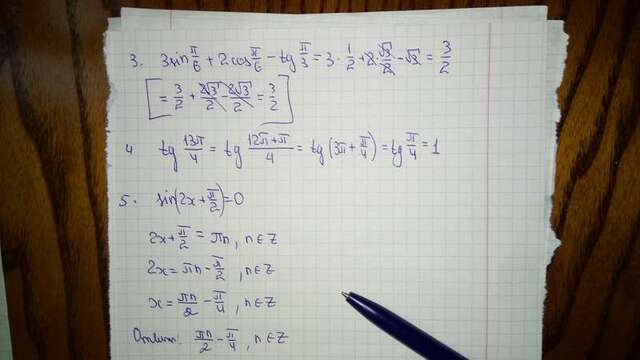 3. 3sin π/6 + 2cos π/6 - tg π/3 = 3·1/2 + 2·√3/2 - √3 = 3/2
[= 3/2 + 2√3/2 - 2√3/2 = 3/2]
4 tg 13π/4 = tg 12π+π/4 = tg (3π + π/4) = tg π/4 = 1
5. sin(2x+π/2)=0
2x+π/2 = πn, n∈Z
2x = πn - π/2, n∈Z
x = πn/2 - π/4, n∈Z
Ответ: πn/2 - π/4, n∈Z